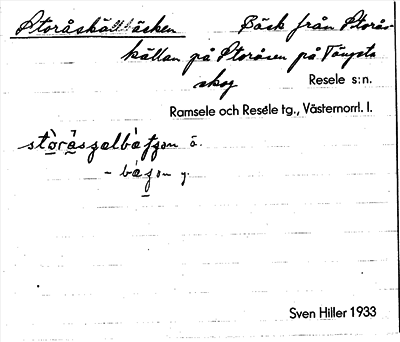 Storåskällbäsken Bäsk från Storås-
källan på Storåsen på Tängsta
skog
Resele s:n.
Ramsele och Resele tg., Västernorrl. l.
ö.
y.
Sven Hiller 1933